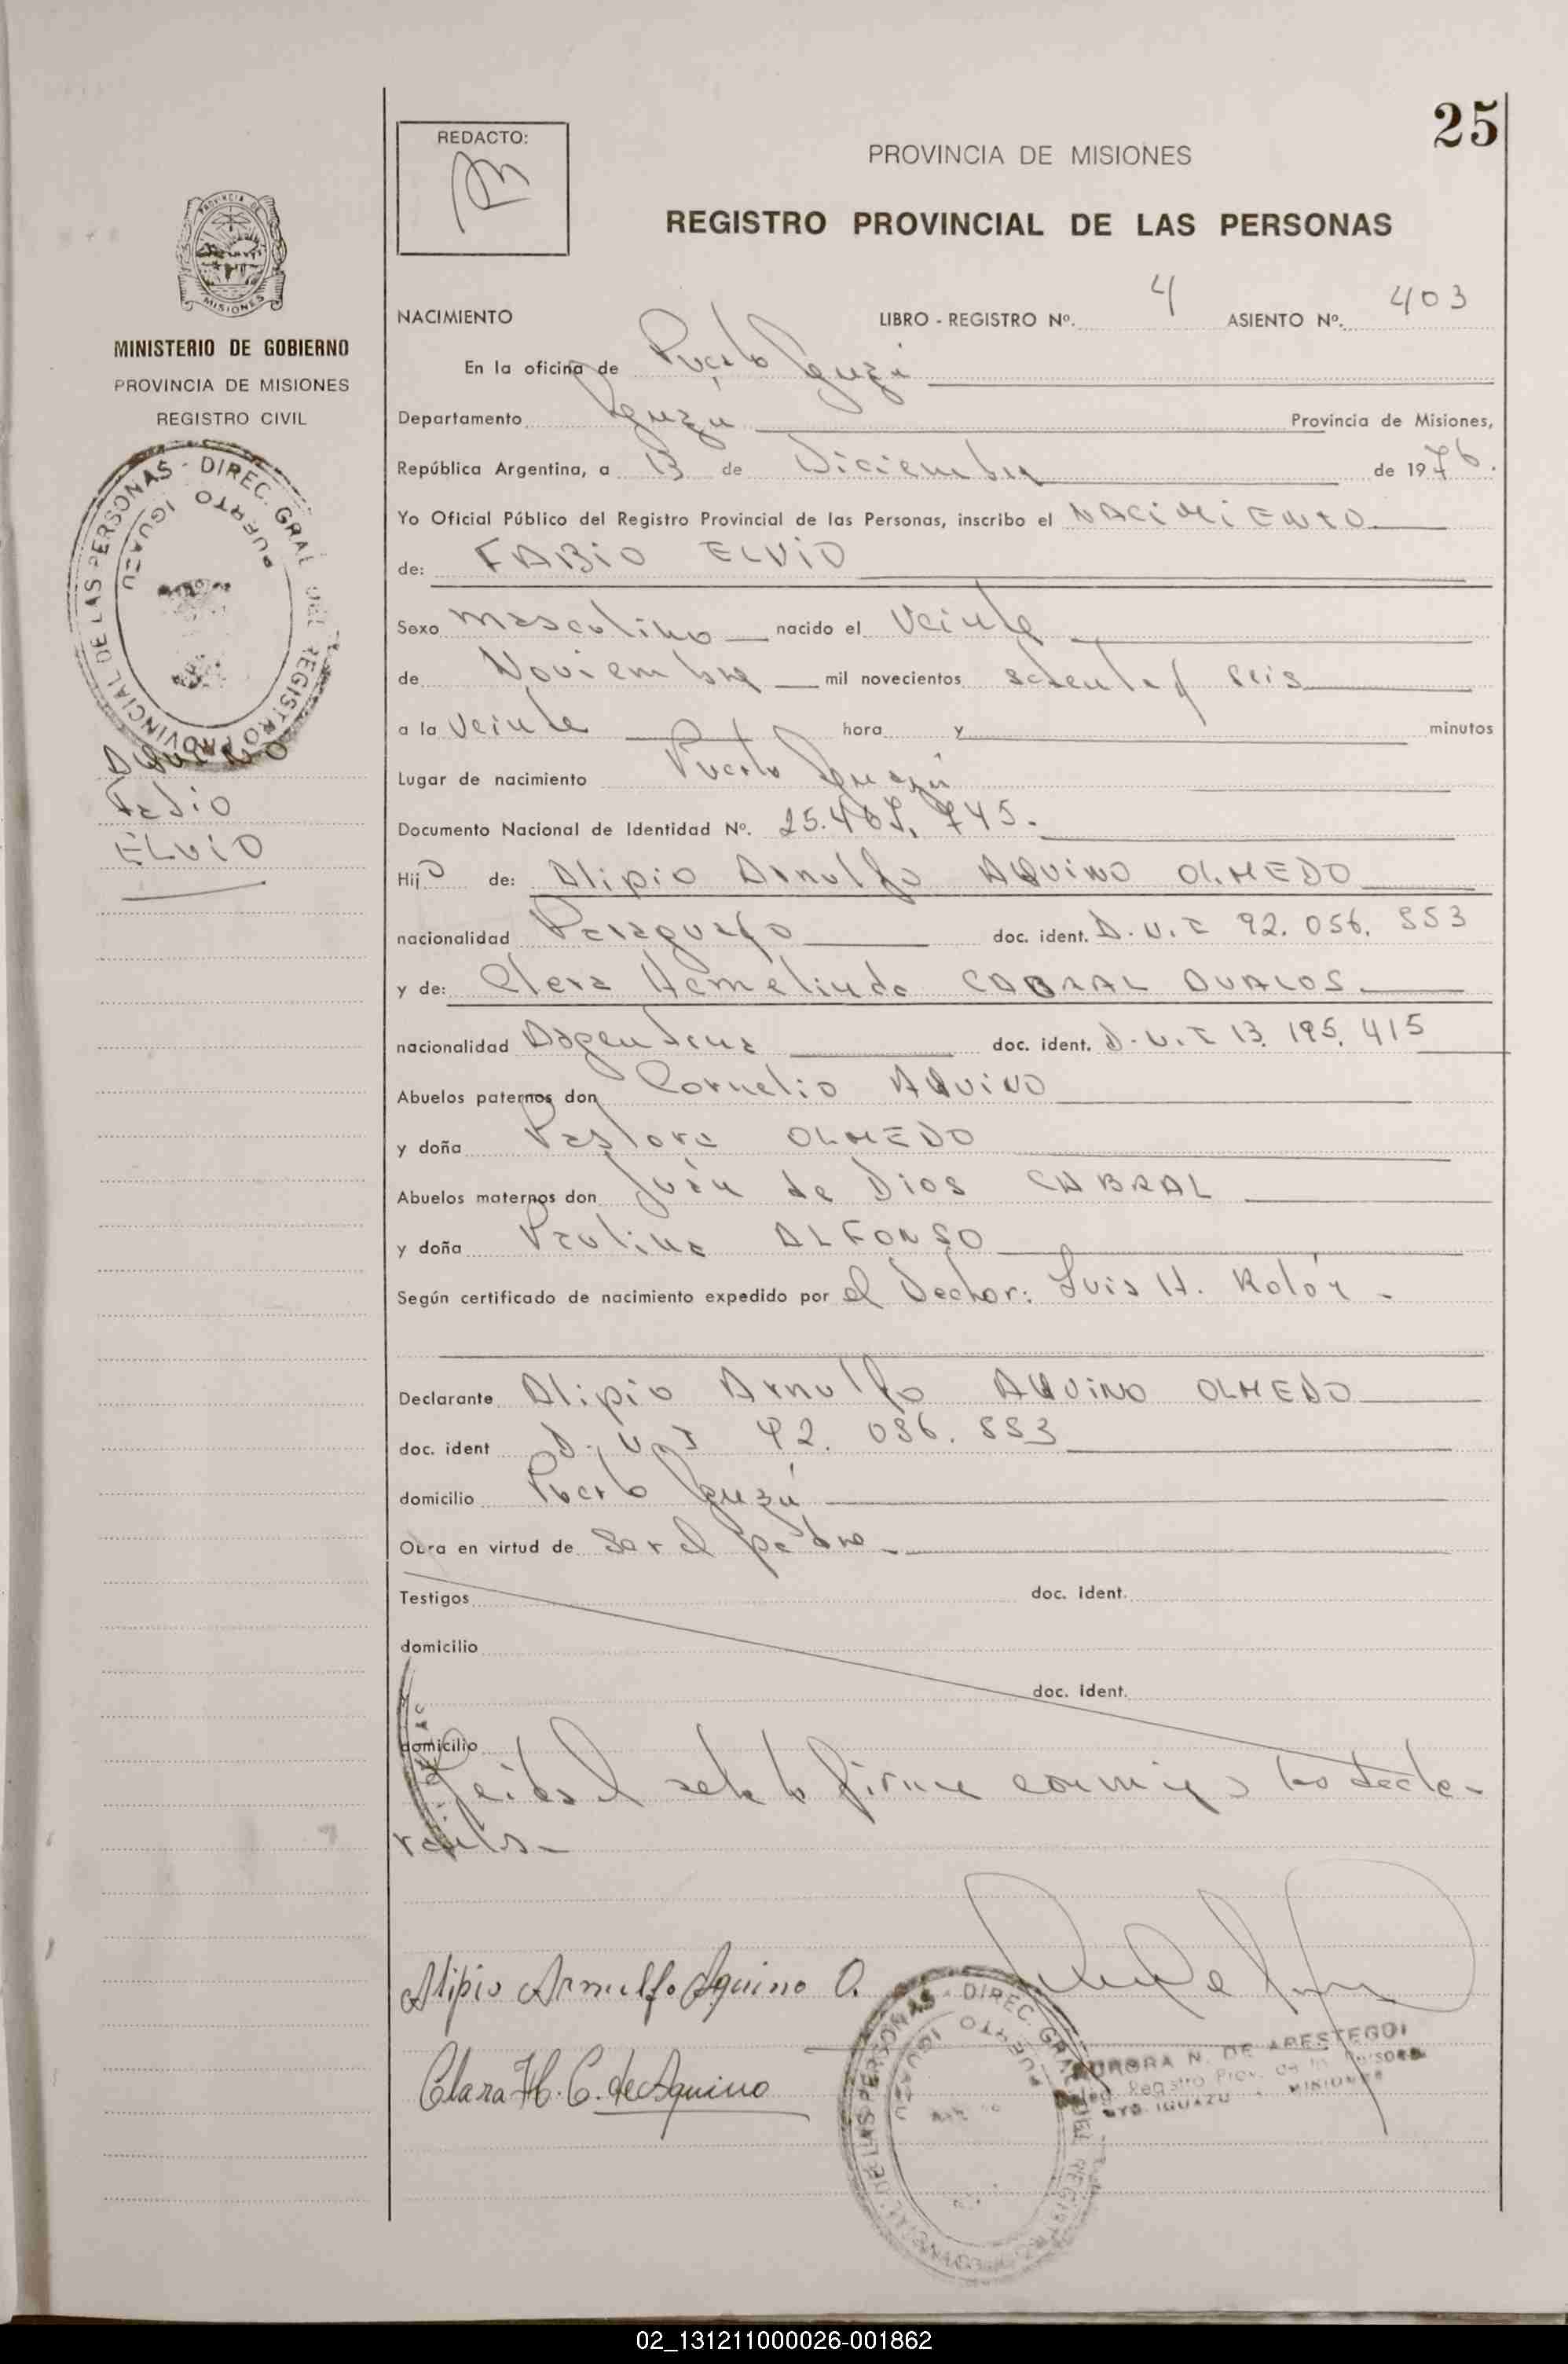 25
REDACTO:
PROVINCIA DE MISIONES
REGISTRO PROVINCIAL DE LAS PERSONAS
PROVINCIA DE
MISIONES
MINISTERIO DE GOBIERNO
PROVINCIA DE MISIONES
REGISTRO CIVIL
PROVINCIAL DE LAS PERSONAS - DIREC. GRAL DEL REGISTRO
PUERTO IGUAZU
AQUINO
Fabio
ELVIO
NACIMIENTO LIBRO - REGISTRO Nº. 4 ASIENTO Nº. 403
En la oficina de Puerto Iguazú
Departamento Iguazú Provincia de Misiones,
República Argentina, a 13 de Diciembre de 1976.
Yo Oficial Público del Registro Provincial de las Personas, inscribo el NACIMIENTO
de: FABIO ELVIO
Sexo masculino nacido el Veinte
de Noviembre mil novecientos setenta y seis
a la Veinte hora y minutos
Lugar de nacimiento Puerto Iguazú
Documento Nacional de Identidad Nº. 25.
Hijo de: Alipio Arnulfo AQUINO OLMEDO
nacionalidad Paraguayo doc. ident. D.N.I 92. 056. 553
y de: Clara Hermelinda CABRAL AVALOS
nacionalidad Argentina doc. ident. D.N.I 13. 195. 415
Abuelos paternos don Cornelio AQUINO
y doña Pastora OLMEDO
Abuelos maternos don Juan de Dios CABRAL
y doña Paulina ALFONSO
Según certificado de nacimiento expedido por el Doctor: Luis H. Rolón -
Declarante Alipio Arnulfo AQUINO OLMEDO
doc. ident D.N.I 92. 056. 553
domicilio Puerto Iguazú
Obra en virtud de ser el padre
Testigos doc. ident.
domicilio
doc. ident.
domicilio
Leida el acta la firma conmigo los decla-
rantes
Alipio Arnulfo Aquino O.
Clara H. C. de Aquino
PROVINCIAL DE LAS PERSONAS - DIREC. GRAL DEL REGISTRO
PUERTO IGUAZU
AURORA N. DE ARESTEGUI
Deleg. Registro Prov. de las Personas
PTO. IGUAZU - MISIONES
02_131211000026-001862